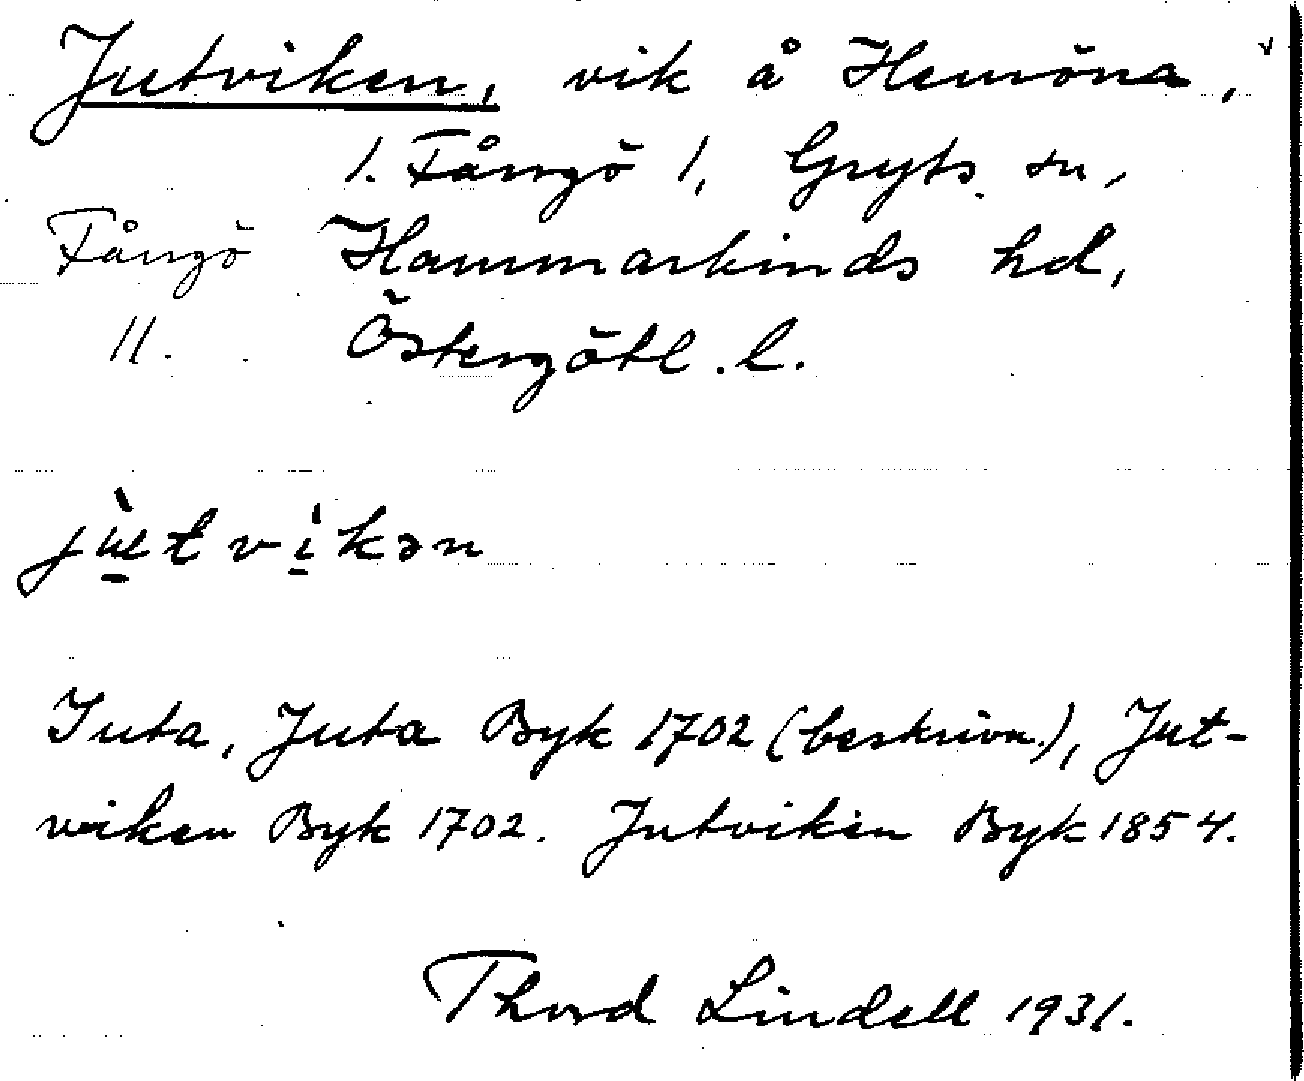 Jutviken, vik å Hemöna,
1. Fångö 1, Gryts sn,
Fångö Hammarkinds hd,
11. Östergötl. l.
jùtvìkən
Juta, Juta Byk 1702 (beskrivn.), Jut-
viken Byk 1702. Jutviken Byk 1854.
Thord Lindell 1931.